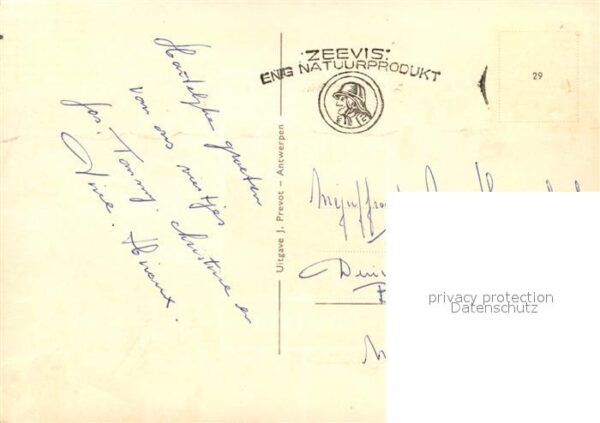 Hartelijke groeten
van ons viertjes
Jos. Tommy. Christine en
ZEEVIS
ENIG NATUURPRODUKT
29
Uitgave J. Prevot – Antwerpen
Mejuffrouw
privacy protection
Datenschutz